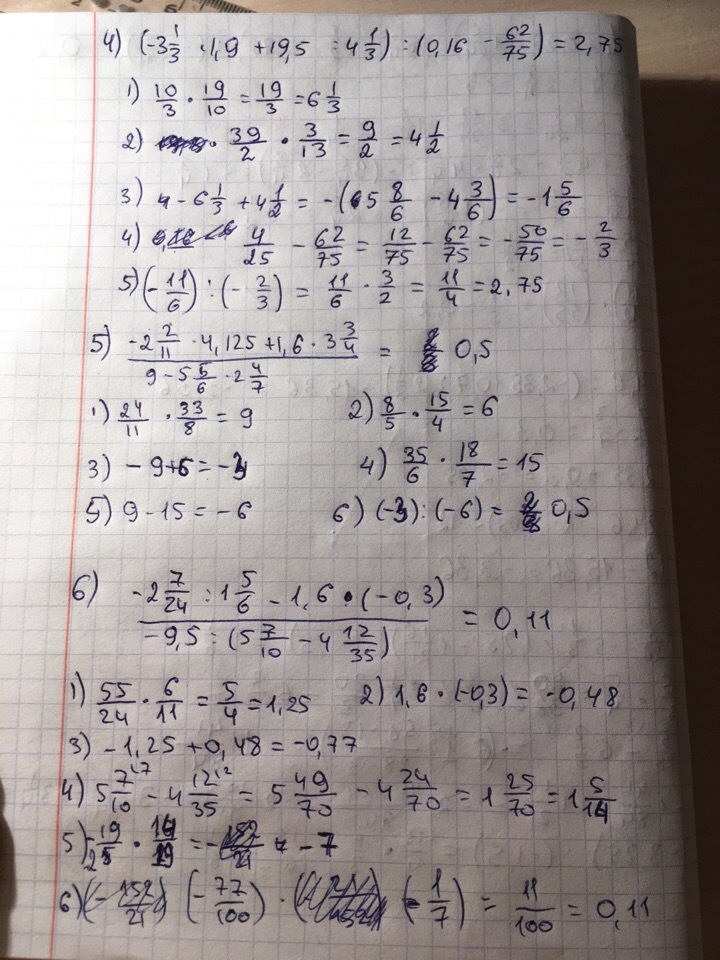 4) (-3 1/3 · 1,9 + 19,5 : 4 1/3) : (0,16 - 62/75) = 2,75
1) 10/3 · 19/10 = 19/3 = 6 1/3
2) · 39/2 · 3/13 = 9/2 = 4 1/2
3) - 6 1/3 + 4 1/2 = -(5 8/6 - 4 3/6) = -1 5/6
4) 4/25 - 62/75 = 12/75 - 62/75 = -50/75 = -2/3
5) (-11/6) : (-2/3) = 11/6 · 3/2 = 11/4 = 2,75
5) (-2 2/11 · 4,125 + 1,6 · 3 3/4) / (9 - 5 5/6 · 2 4/7) = 0,5
1) 24/11 · 33/8 = 9 2) 8/5 · 15/4 = 6
3) - 9 + 6 = -3 4) 35/6 · 18/7 = 15
5) 9 - 15 = -6 6) (-3) : (-6) = 0,5
6) (-2 7/24 : 1 5/6 - 1,6 · (-0,3)) / (-9,5 : (5 7/10 - 4 12/35)) = 0,11
1) 55/24 · 6/11 = 5/4 = 1,25 2) 1,6 · (-0,3) = -0,48
3) - 1,25 + 0,48 = -0,77
4) 5 7/10 - 4 12/35 = 5 49/70 - 4 24/70 = 1 25/70 = 1 5/14
5) -19/2 · 14/19 = - 7
6) (-77/100) · (-1/7) = 11/100 = 0,11